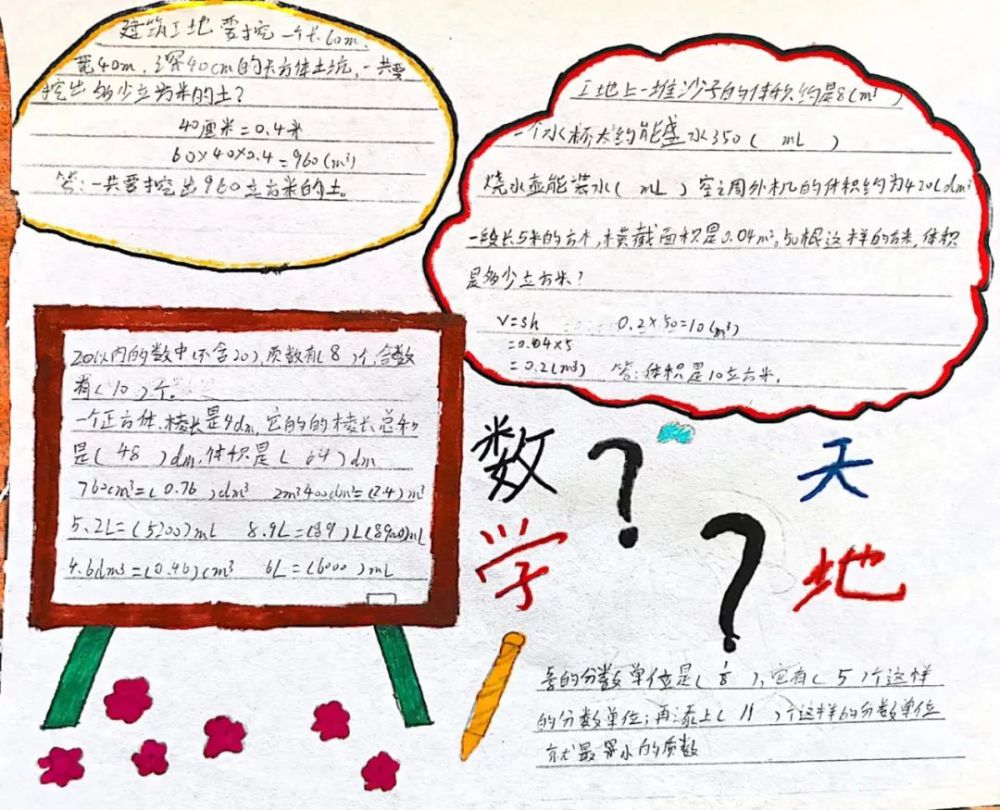 建筑工地要挖一个长60m,
宽40m,深40cm的长方体土坑,一共要
挖出多少立方米的土?
40厘米=0.4米
60×40×0.4=960(m³)
答:一共要挖出960立方米的土。
工地上一堆沙子的体积约是8(m³)
一个水桥大约能盛水350( mL )
烧水壶能装水( mL )空之周外机的体积约为420(dm³
一段长5米的方木,横截面积是0.04m²。50根这样的方米,体积
是多少立方米?
V=sh 0.2×50=10(m³)
=0.04×5
=0.2(m³) 答:体积是10立方米.
20以内的数中(不含20),质数有(8)个,合数
有(10)个。
一个正方体,棱长是4dm,它的的棱长总和
是(48)dm,体积是(64)dm
760cm³=(0.76)dm³ 2m³400dm³=(2.4)m³
5.2L=(5200)mL 8.9L=(89)L(8900)mL
4.6dm³=(0.46)cm³ 6L=(6000)mL
数学
天地
的分数单位是(),它有(5)个这样
的分数单位;再添上(11)个这样的分数单位
就最小的质数